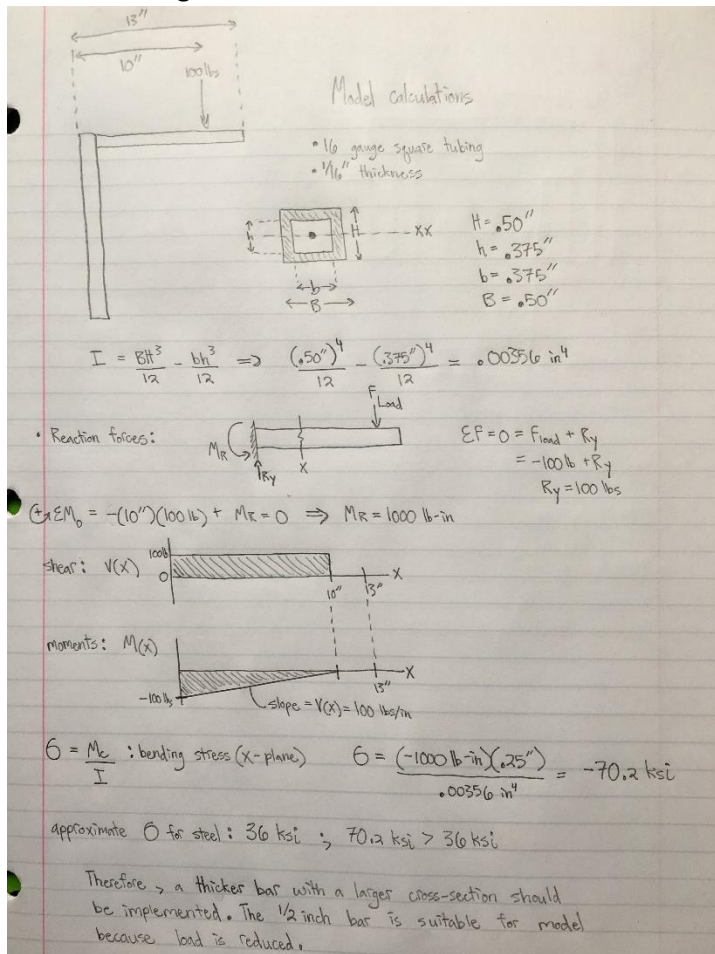 13"
10"
100lbs
Model calculations
• 16 gauge square tubing
• 1/16" thickness
h H XX
b
B
H = .50"
h = .375"
b = .375"
B = .50"
I = BH³/12 - bh³/12 => (.50")⁴/12 - (.375")⁴/12 = .00356 in⁴
• Reaction forces:
F Load
MR
Ry
X
ΣF = 0 = Fload + Ry
= -100 lb + Ry
Ry = 100 lbs
+ ΣM₀ = -(10")(100 lb) + MR = 0 => MR = 1000 lb-in
shear: V(X)
100lb
0
10" 13" X
moments: M(X)
-100 lb
13" X
slope = V(X) = 100 lbs/in
σ = Mc/I : bending stress (X-plane) σ = (-1000 lb-in)(.25")/.00356 in⁴ = -70.2 ksi
approximate σ for steel: 36 ksi ; 70.2 ksi > 36 ksi
Therefore, a thicker bar with a larger cross-section should
be implemented. The 1/2 inch bar is suitable for model
because load is reduced.